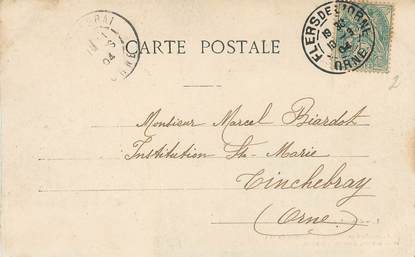 CARTE POSTALE
FLERS DE L'ORNE
ORNE
04
04
ORNE
Monsieur Marcel Biardot
Institution Ste-Marie
Tinchebray
(Orne)
2